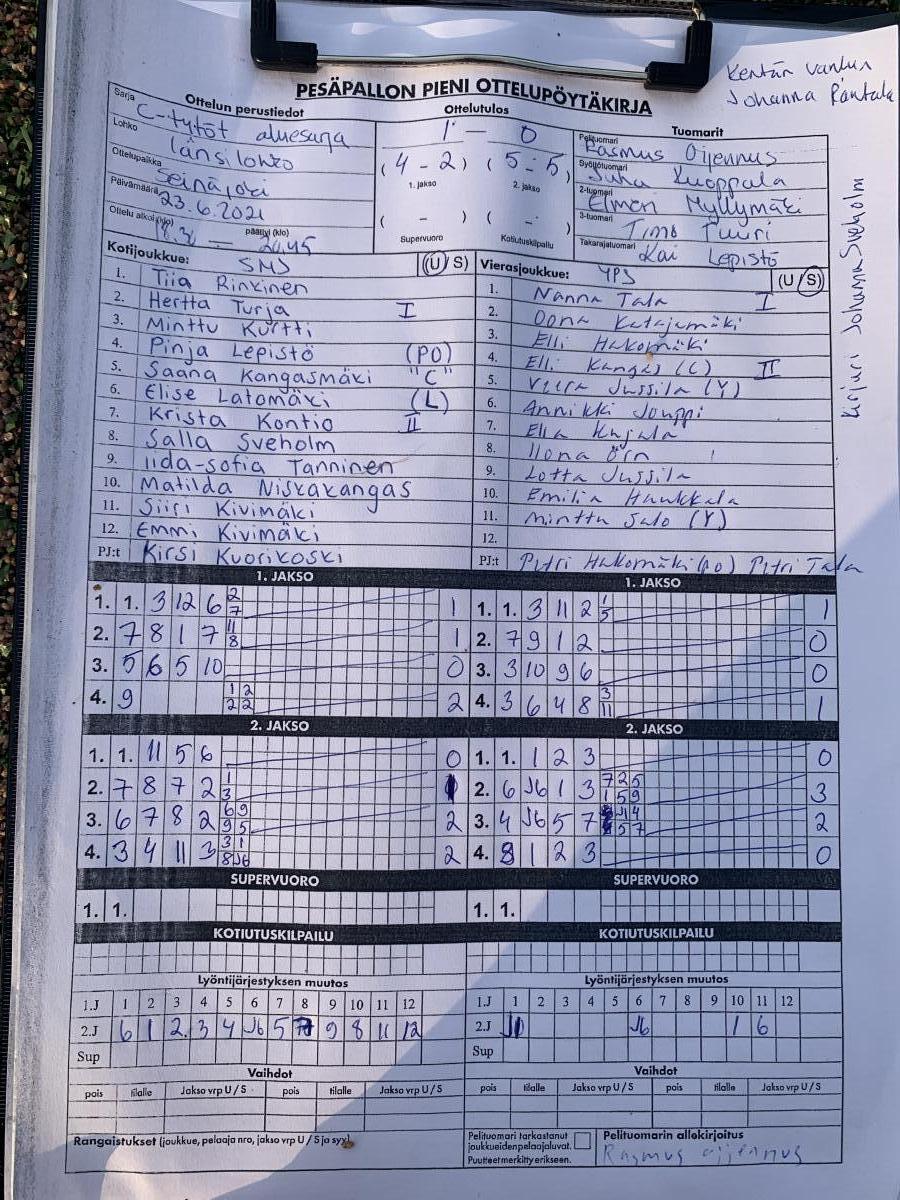 Kentän vanhin
Johanna Rantala
PESÄPALLON PIENI OTTELUPÖYTÄKIRJA
Sarja
Ottelun perustiedot
C-tytöt aluesarja
Lohko
länsilohko
Ottelupaikka
Seinäjoki
Päivämäärä
23.6.2021
Ottelu alkoi (klo) päättyi (klo)
— 20.45
Ottelutulos
1 — 0
(4 - 2) (5 - 5)
1. jakso 2. jakso
( - ) ( - )
Supervuoro Kotiutuskilpailu
Tuomarit
Pelituomari
Rasmus Oijennus
Syöttötuomari
Juha Kuoppala
2-tuomari
Elmeri Myllymäki
3-tuomari
Timo Tuuri
Takarajatuomari
Kai Lepistö
Kirjuri Johanna Sveholm
Kotijoukkue: SMJ (U/S)
1. Tiia Rinkinen
2. Hertta Turja I
3. Minttu Kurtti
4. Pinja Lepistö (PO)
5. Saana Kangasmäki "C"
6. Elise Latomäki (L)
7. Krista Kontio II
8. Salla Sveholm
9. Iida-Sofia Tanninen
10. Matilda Niskakangas
11. Siiri Kivimäki
12. Emmi Kivimäki
PJ:t Kirsi Kuorikoski
Vierasjoukkue: YPS (U/S)
1. Nanna Tala I
2. Oona Katajamäki
3. Elli Hakomäki
4. Elli Kangas (C) II
5. Veera Jussila (Y)
6. Annikki Jouppi
7. Ella Kujala
8. Ilona Örn
9. Lotta Jussila
10. Emilia Haukkala
11. Minttu Salo (Y)
12.
PJ:t Petri Hakomäki (PO) Petri Tala
1. JAKSO
1. 1. 3 12 6 2 7 1
2. 7 8 1 7 11 8 1
3. 5 6 5 10 0
4. 9 1 2 2 2 2
2. JAKSO
1. 1. 11 5 6 0
2. 7 8 7 2 1 3
3. 6 7 8 2 6 9 9 5 2
4. 3 4 11 3 3 1 8 J6 2
SUPERVUORO
1. 1.
KOTIUTUSKILPAILU
Lyöntijärjestyksen muutos
1.J 1 2 3 4 5 6 7 8 9 10 11 12
2.J 6 1 2 3 4 J6 5 7 9 8 11 12
Sup
Vaihdot
pois tilalle Jakso vrp U / S pois tilalle Jakso vrp U / S
Rangaistukset (joukkue, pelaaja nro, jakso vrp U / S ja syy)
1. JAKSO
1. 1. 3 11 2 1 5 1
2. 7 9 1 2 0
3. 3 10 9 6 0
4. 3 6 4 8 3 11 1
2. JAKSO
1. 1. 1 2 3 0
2. 6 J6 1 3 7 2 5 1 5 9 3
3. 4 J6 5 7 J1 4 5 7 2
4. 8 1 2 3 0
SUPERVUORO
1. 1.
KOTIUTUSKILPAILU
Lyöntijärjestyksen muutos
1.J 1 2 3 4 5 6 7 8 9 10 11 12
2.J J6 1 6
Sup
Vaihdot
pois tilalle Jakso vrp U / S pois tilalle Jakso vrp U / S
Pelituomari tarkastanut
joukkueiden pelaajaluvat.
Puutteet merkitty erikseen.
Pelituomarin allekirjoitus
Rasmus Oijennus